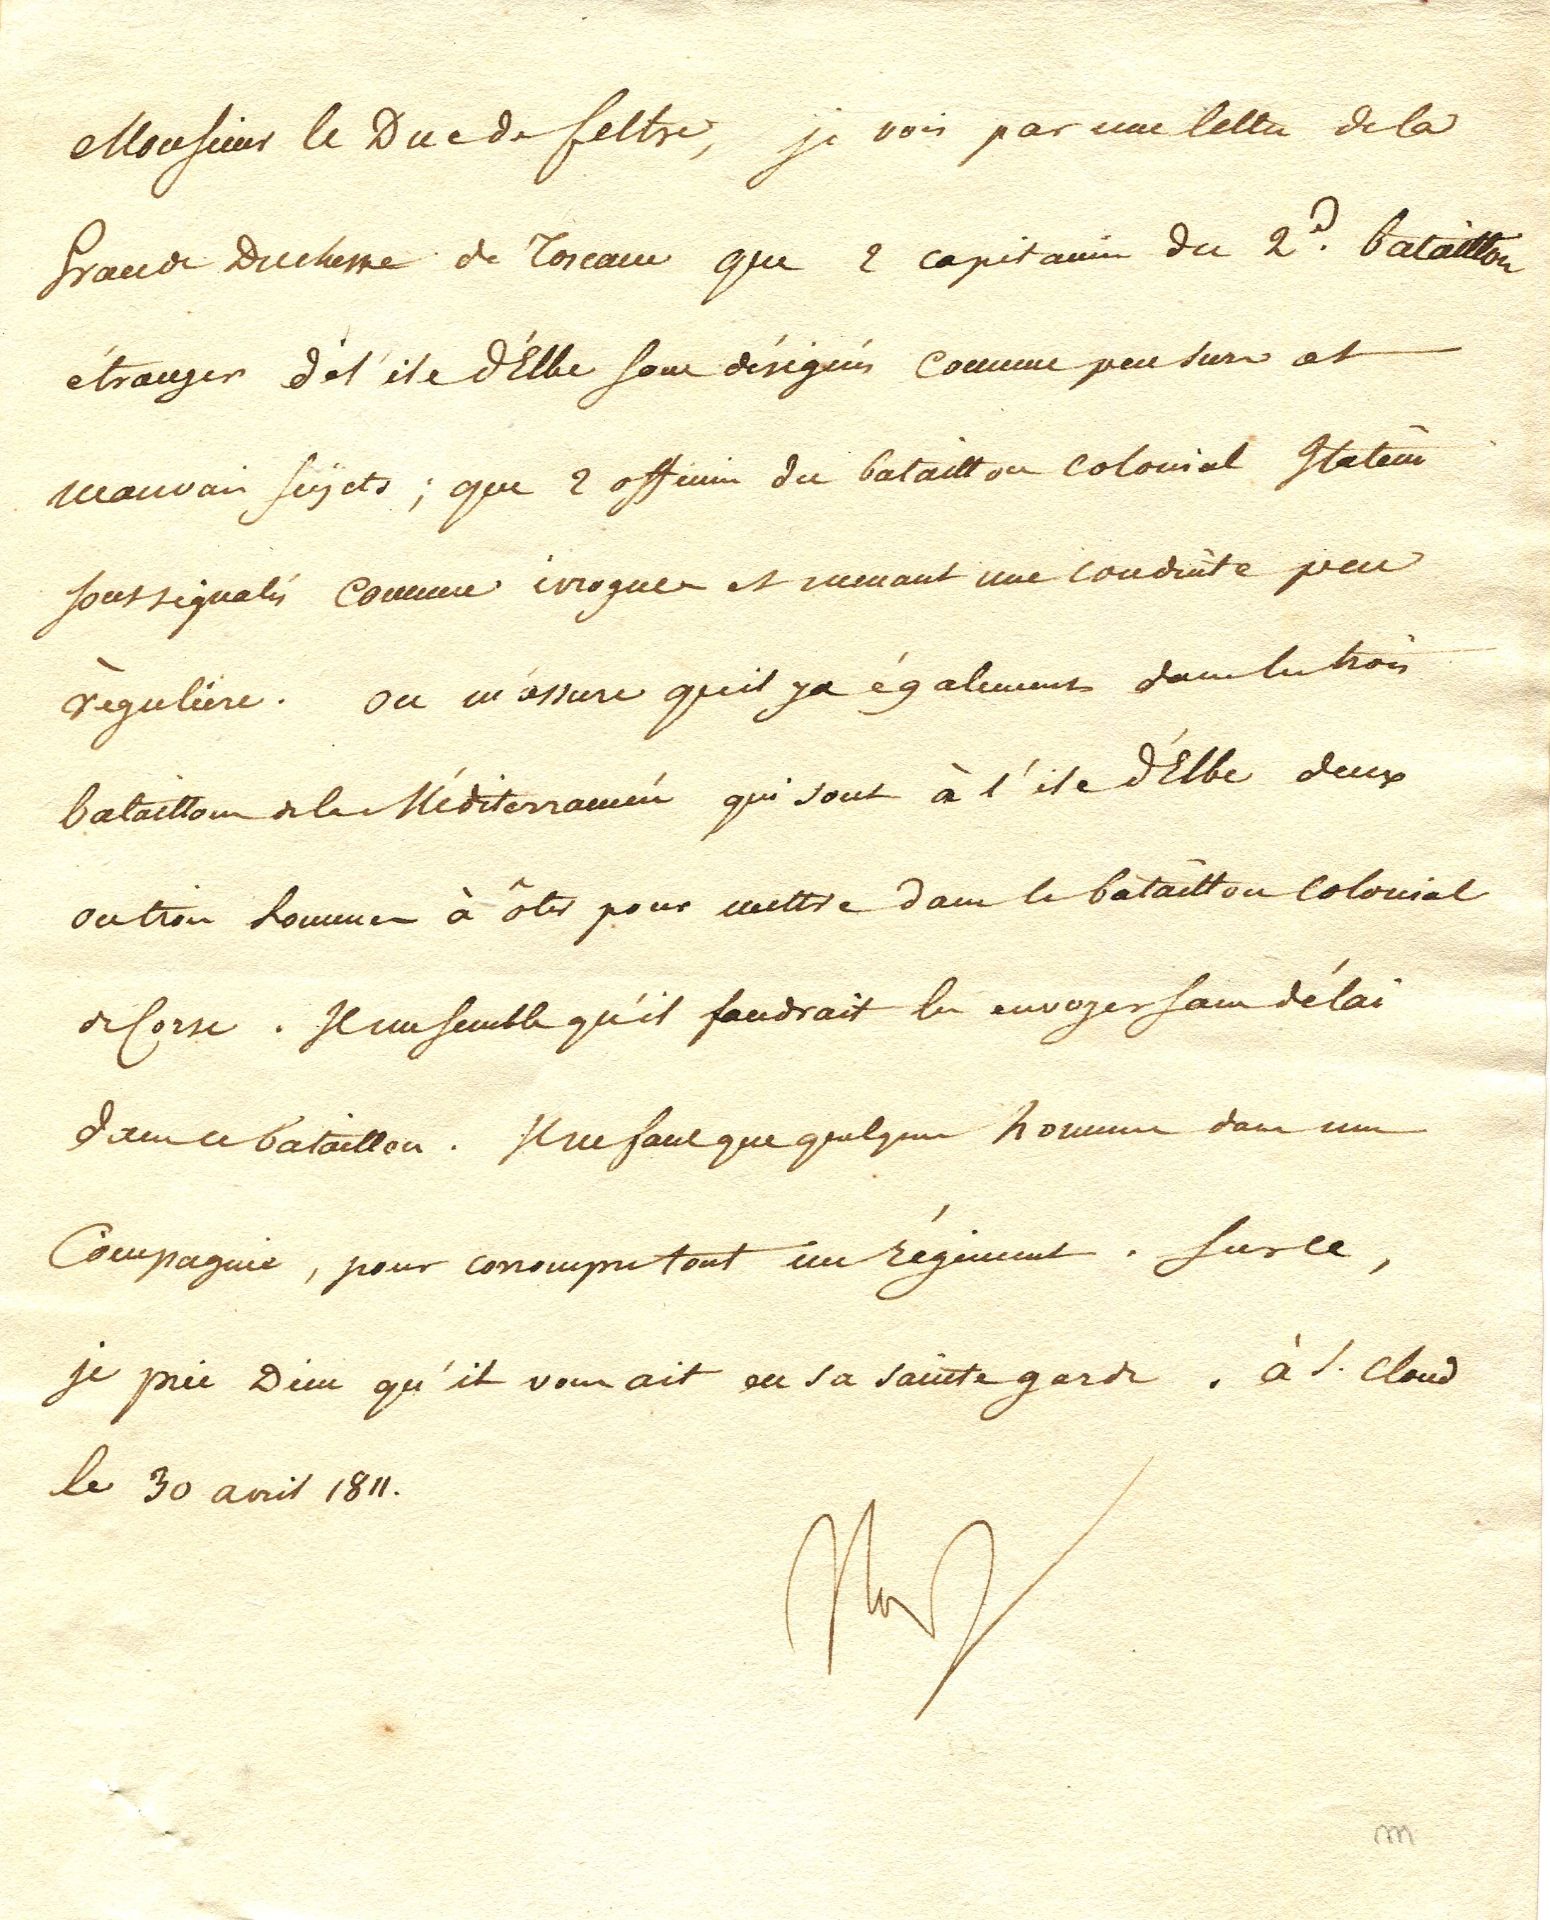 Monsieur le Duc de feltre, je vois par une lettre de la
Grande Duchesse de Toscane que 2 capitaines du 2d. bataillon
étranger de l'ile d'Elbe sont désignés comme peu surs et
mauvais sujets ; que 2 officiers du bataillon colonial Italien
sont signalés comme ivrognes et menant une conduite peu
régulière. on m'assure qu'il y a également dans les trois
bataillons de la Méditerranée qui sont à l'ile d'Elbe deux
ou trois hommes à ôter pour mettre dans le bataillon colonial
de Corse. Il me semble qu'il faudrait les envoyer sans délai
dans ce bataillon. Il ne faut que quelques hommes dans une
Compagnie, pour corrompre tout un régiment. Sur ce,
je prie Dieu qu'il vous ait en sa sainte garde. à S. Cloud
le 30 avril 1811.
Nap
m